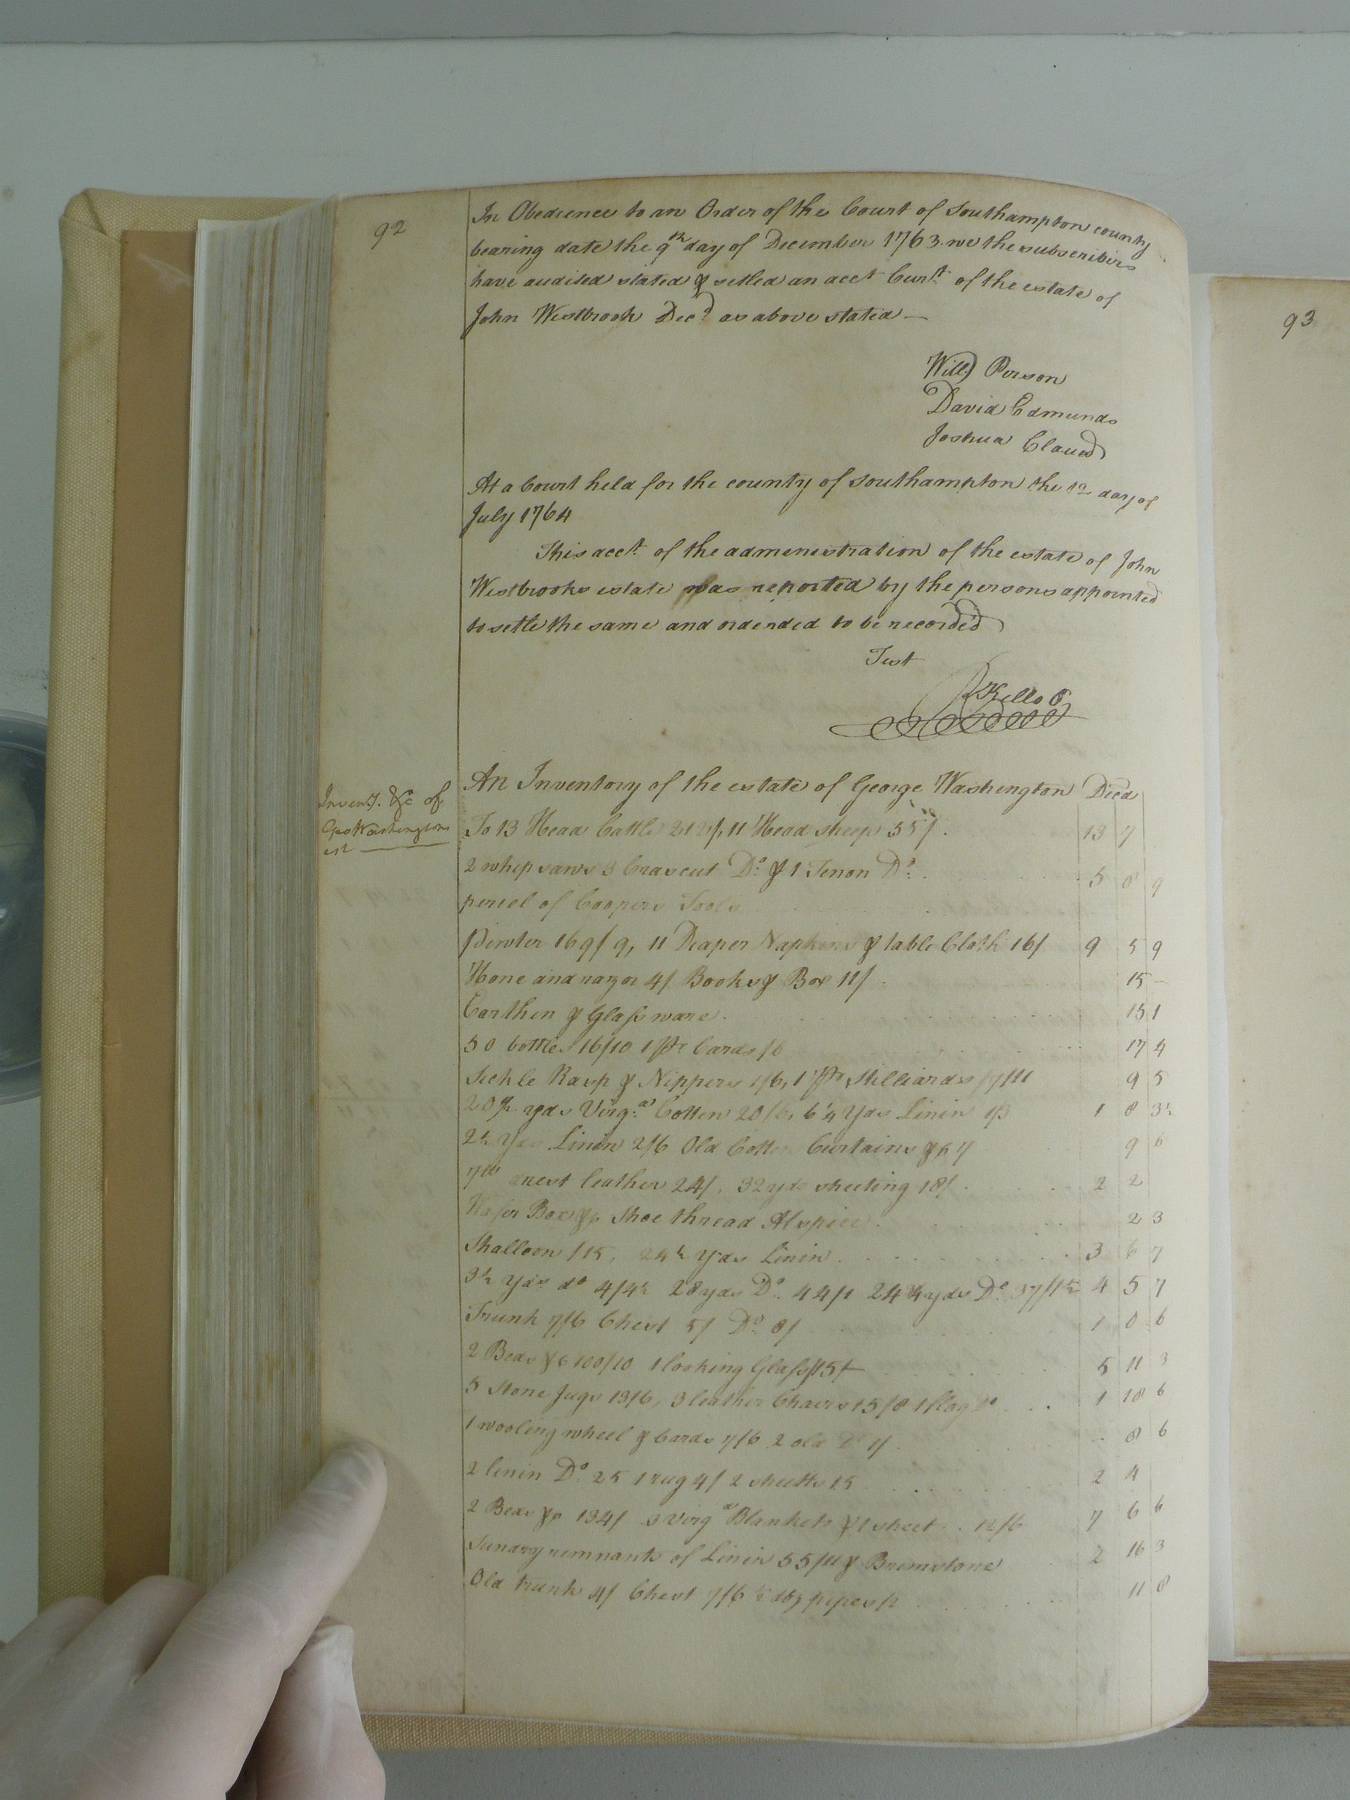 92
In Obedience to an Order of the Court of Southampton county
bearing date the 9th day of December 1763. we the subscribers
have audited stated & setled an acct Curt. of the estate of
John Westbrook Decd as above stated —
Will Person
David Edmunds
Joshua Claud
At a Court held for the county of Southampton the 12 day of
July 1764
This acct. of the administration of the estate of John
Westbrooks estate was reported by the persons appointed
to setle the same and ordended to be record'd
Test
Kello
Inventy. &c of
Geo Washingtons
est
An Inventory of the estate of George Washington Decd
To 13 Head Cattle 212/, 11 Head sheep 55/. 13 7
2 whip saws 3 Crascut Do. & 1 Tenon Do. 5 8 9
percel of Coopers Tools
Pewter 169/9, 11 Deaper Napkins & table Cloth 16/ 9 5 9
Hone and razor 4/ Books & Box 11/. 15 —
Earthen & Glass ware. 15 1
50 bottles 16/10 1 pr Cards /6 17 4
Sickle Rasp & Nippers 1/6, 1 pr Stilliards 7/11 9 5
20 yds Virga. Cotten 20/6, 6 1/4 yds Linin 1 8 3
2 yds Linin 2/6 Old Cotten Curtains 9 6
leather 24/. 32 yds sheeting 18/. 2 2
Box shoe thread Alspice. 2 3
Shalloon /15, 24 yds Linin 3 6 7
3 yds do 4/4 28 yds Do. 44/1 24 yds Do 37/ 4 5 7
Trunk 7/6 Chest 5/ Do. 8/ 1 0 6
2 Beds &c 100/10 1 looking Glass 15/ 5 11 3
5 Stone Jugs 13/6, 3 leather Chairs 15/8 1 flag 1 18 6
1 wooling wheel & Cards 7/6 2 old 8 6
2 linin Do. 25 1 rug 4/ 2 sheets 15 2 4
2 Beds 134/ 3 Virga Blankets & 1 sheet. 12/6 7 6 6
Sundry remnants of Linin 55/11 & Brimstone 2 16 3
Old trunk 4/ Chest 7/6 pipes /2 11 8
93